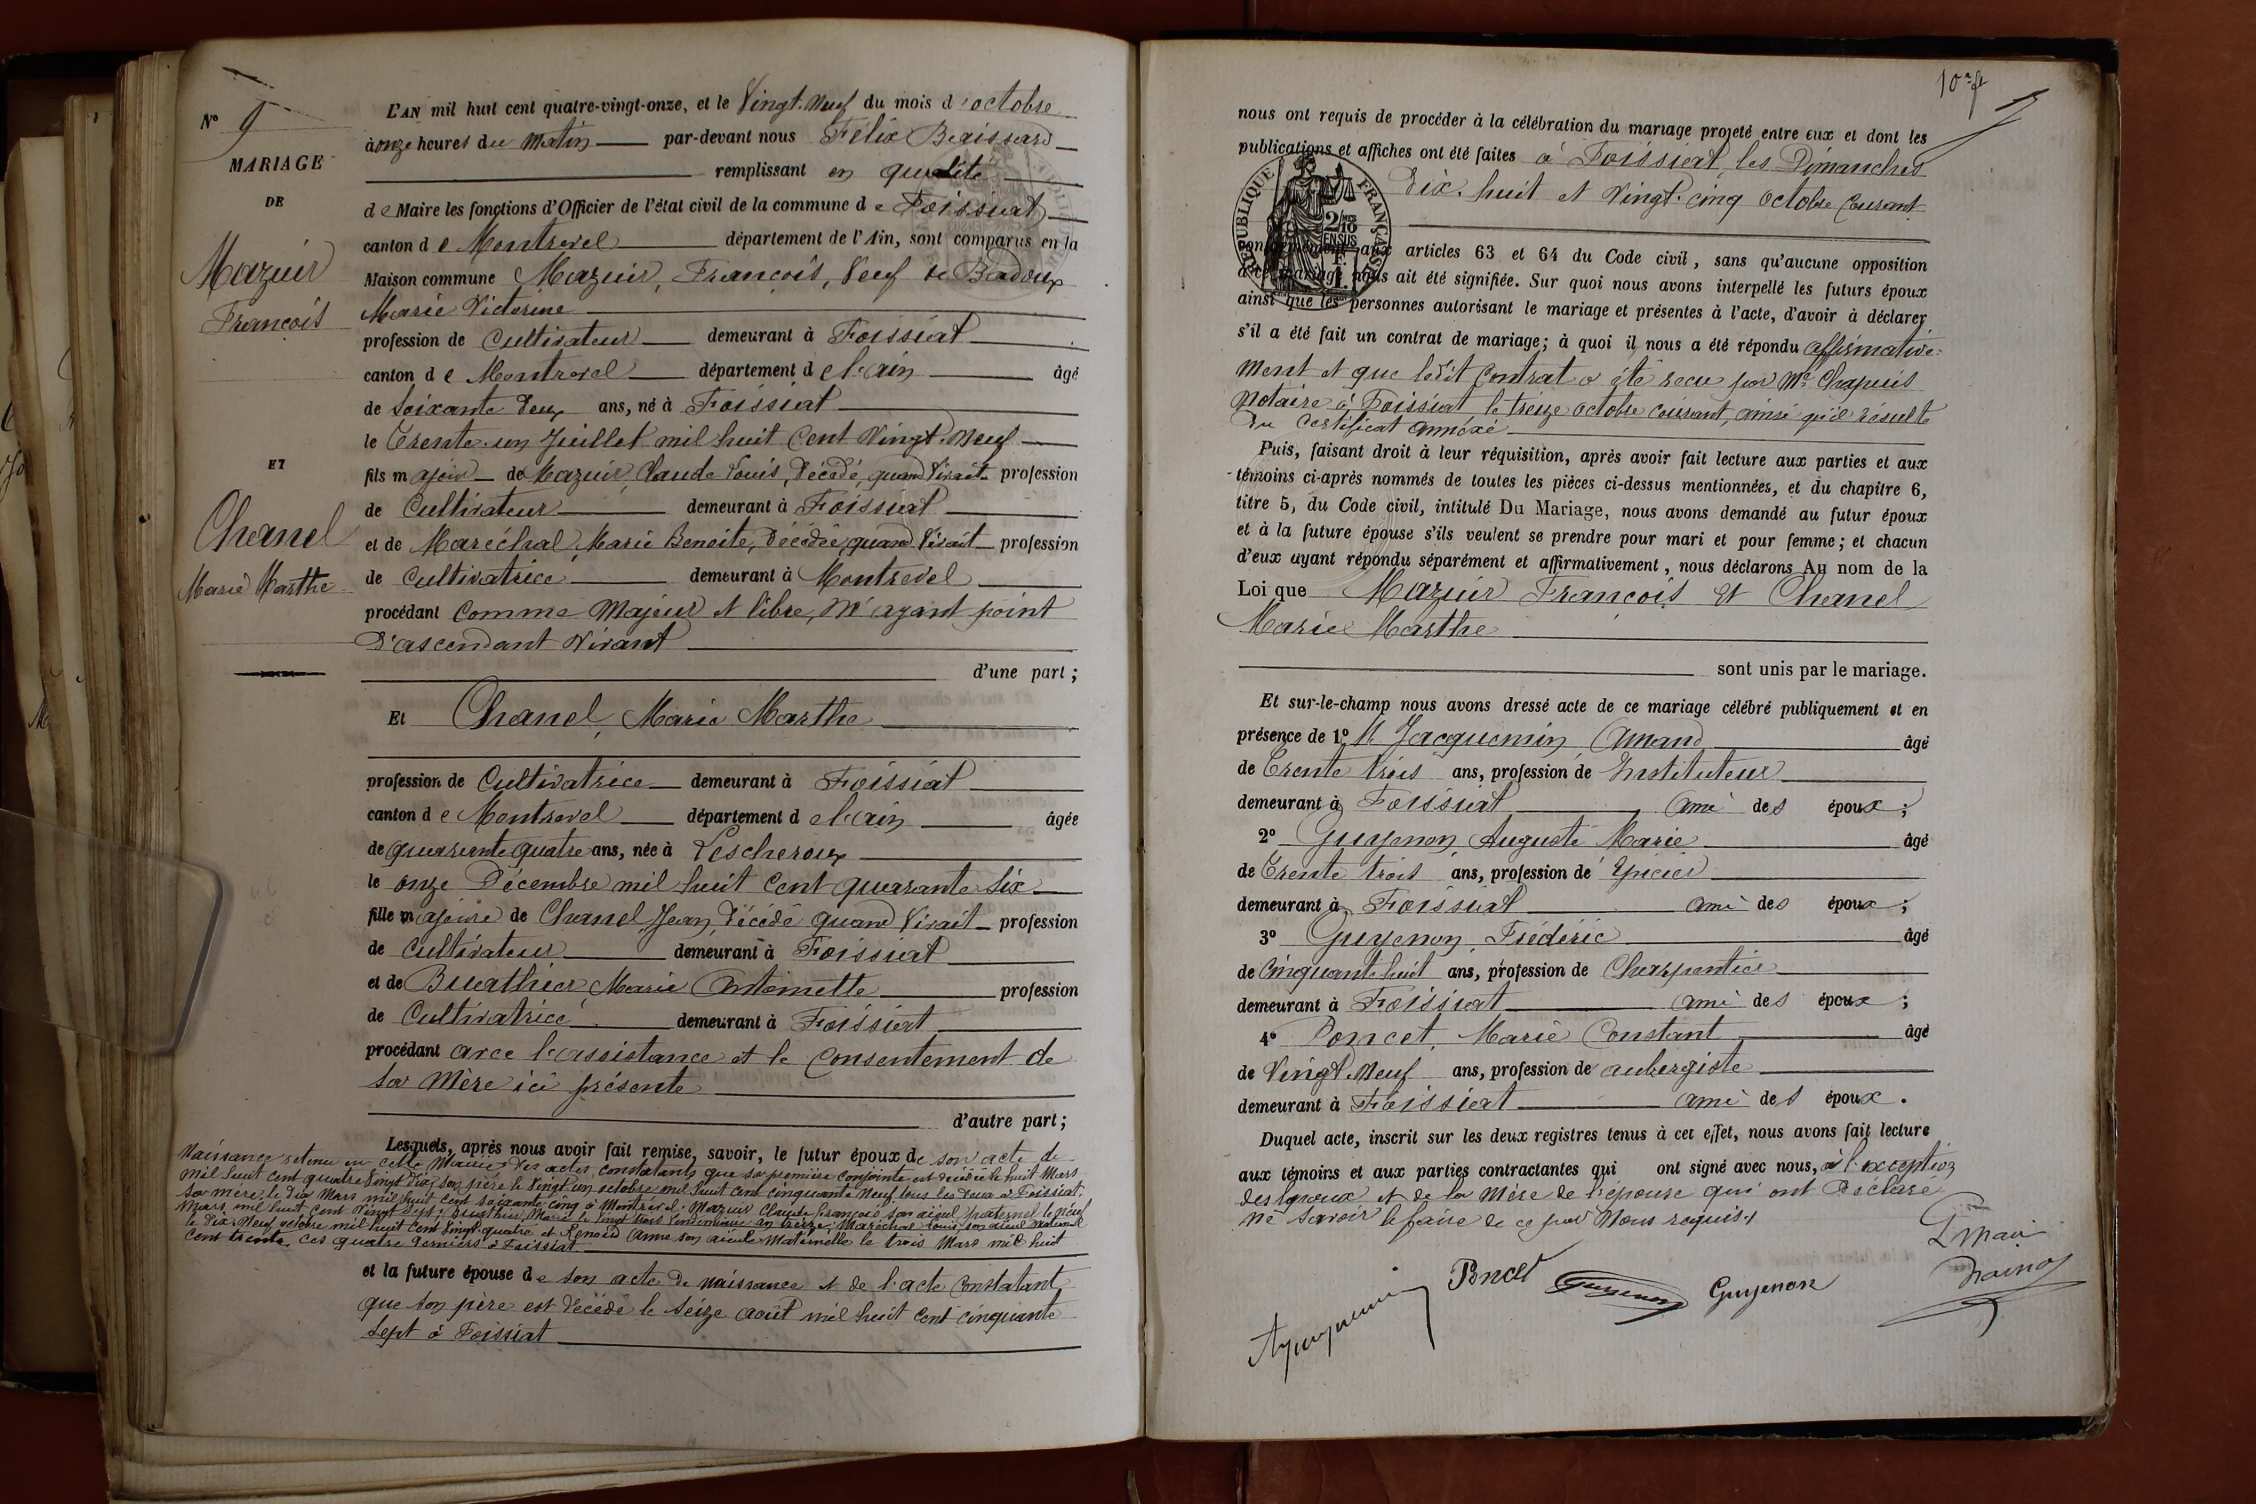 N° 9
MARIAGE
DE
Mazuir
François
ET
Chanel
Marie Marthe
L'AN mil huit cent quatre-vingt-onze, et le Vingt-Neuf du mois d'octobre
à onze heures du Matin par-devant nous Félix
remplissant en qualité
de Maire les fonctions d'Officier de l'état civil de la commune de Foissiat
canton de Montrevel département de l'Ain, sont comparus en la
Maison commune Mazuir, François, Veuf de Badoux
Marie Victorine
profession de Cultivateur demeurant à Foissiat
canton de Montrevel département de l'ain âgé
de Soixante Deux ans, né à Foissiat
le Trente un Juillet mil huit Cent Vingt-Neuf
fils majeur de Mazuir, Claude Louis, Décédé, quand Vivait profession
de Cultivateur demeurant à Foissiat
et de Maréchal, Marie Benoite, Décédée, quand Vivait profession
de Cultivatrice demeurant à Montrevel
procédant Comme Majeur et libre, N'ayant point
D'ascendant Vivant
d'une part;
Et Chanel, Marie Marthe
profession de Cultivatrice demeurant à Foissiat
canton de Montrevel département de l'ain âgée
de quarante quatre ans, née à Lescheroux
le onze Décembre mil huit Cent quarante Six
fille majeure de Chanel Jean, Décédé quand Vivait profession
de Cultivateur demeurant à Foissiat
et de Buathier Marie Antoinette profession
de Cultivatrice demeurant à Foissiat
procédant avec l'assistance et le Consentement de
Sa Mère ici présente
d'autre part;
Lesquels, après nous avoir fait remise, savoir, le futur époux de son acte de
Naissance retenu en cette Mairie, Des actes constatants que sa première Conjointe est décédée le huit Mars
Mil huit cent quatre Vingt Dix, son père le Vingt un octobre mil huit Cent Cinquante Neuf, tous les Deux à Foissiat,
Sa mère, le dix Mars mil huit Cent soixante cinq à Montrevel, Mazuir Claude François son aïeul paternel le Neuf
Mars mil huit Cent Vingt Sept, Buathier, Marie le Vingt trois Vendémiaire an treize; Maréchal Louis son aïeul Maternel
le Dix-Neuf octobre mil huit Cent Vingt-quatre et Renoud Anne son aïeule Maternelle le trois Mars mil huit
Cent trente, ces quatre derniers à Foissiat
et la future épouse de son acte De Naissance et de l'acte Constatant
que Son père est Décédé le Seize août mil huit Cent Cinquante
Sept à Foissiat
nous ont requis de procéder à la célébration du mariage projeté entre eux et dont les
publications et affiches ont été faites à Foissiat, les Dimanches
Dix-huit et Vingt-cinq octobre Courant
REPUBLIQUE FRANÇAISE
2/10
EN SUS
conformément aux articles 63 et 64 du Code civil, sans qu'aucune opposition
à ce mariage nous ait été signifiée. Sur quoi nous avons interpellé les futurs époux
ainsi que les personnes autorisant le mariage et présentes à l'acte, d'avoir à déclarer
s'il a été fait un contrat de mariage; à quoi il nous a été répondu affirmative-
Ment et que ledit Contrat a été reçu par Me Chapuis
Notaire à Foissiat, le treize octobre courant, ainsi qu'il résulte
Du Certificat annexé
Puis, faisant droit à leur réquisition, après avoir fait lecture aux parties et aux
témoins ci-après nommés de toutes les pièces ci-dessus mentionnées, et du chapitre 6,
titre 5, du Code civil, intitulé Du Mariage, nous avons demandé au futur époux
et à la future épouse s'ils veulent se prendre pour mari et pour femme; et chacun
d'eux ayant répondu séparément et affirmativement, nous déclarons Au nom de la
Loi que Mazuir François et Chanel
Marie Marthe
sont unis par le mariage.
Et sur-le-champ nous avons dressé acte de ce mariage célébré publiquement et en
présence de 1° M. Jacquemin Amand âgé
de Trente trois ans, profession de Instituteur
demeurant à Foissiat ami des époux;
2° Guyenon Auguste Marie âgé
de Trente trois ans, profession de Epicier
demeurant à Foissiat ami des époux;
3° Guyenon, Frédéric âgé
de Cinquante huit ans, profession de Charpentier
demeurant à Foissiat ami des époux;
4° Poncet, Marie Constant âgé
de Vingt-Neuf ans, profession de aubergiste
demeurant à Foissiat ami des époux.
Duquel acte, inscrit sur les deux registres tenus à cet effet, nous avons fait lecture
aux témoins et aux parties contractantes qui ont signé avec nous, à l'exception
des époux et de la Mère de l'épouse qui ont Déclaré
Ne Savoir le faire de ce par Nous requis.
Poncet
Guyenon
Guyenon